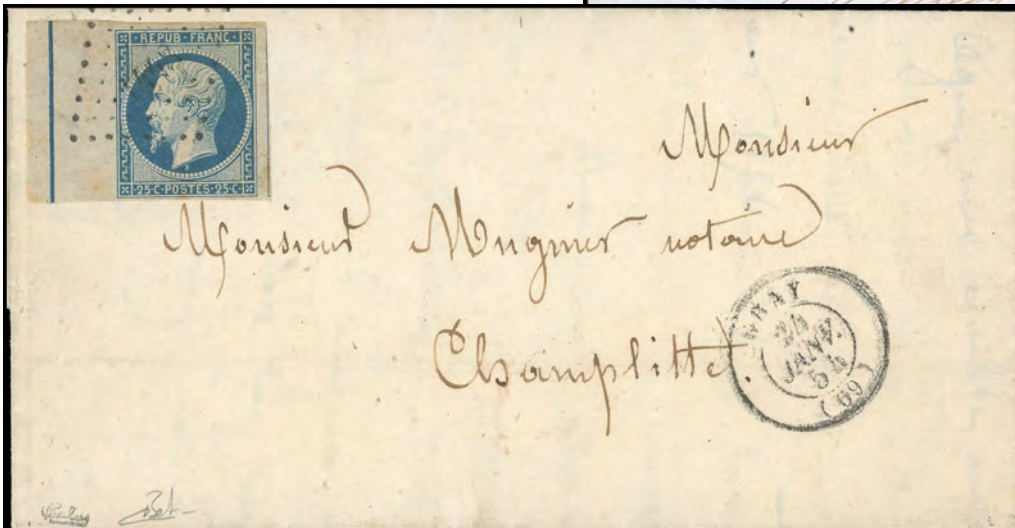 REPUB·FRANC·
25·C·POSTES·25·C·
Monsieur
Monsieur Mugnier notaire
Champlitte.
GRAY
24
JANV.
54
(69)